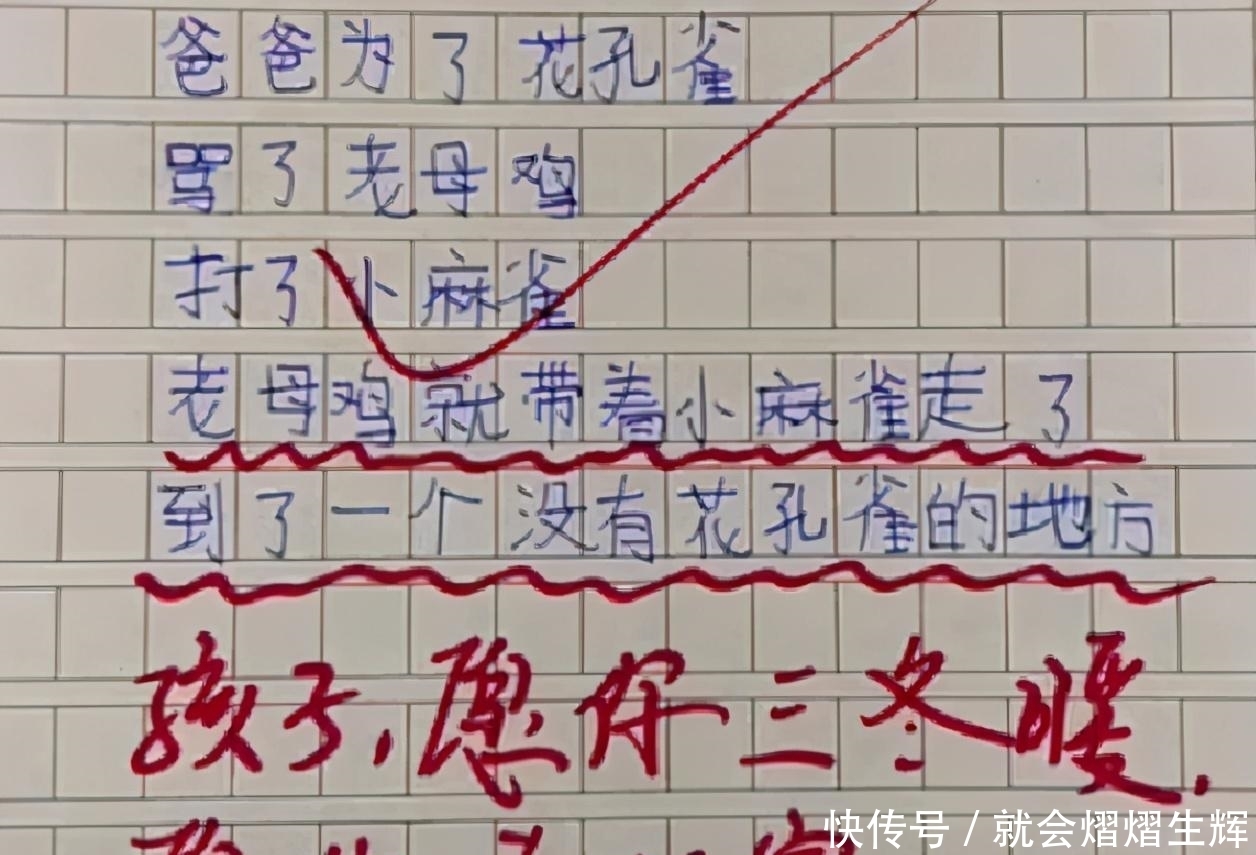 爸爸为了花孔雀
骂了老母鸡
打了小麻雀
老母鸡就带着小麻雀走了
到了一个没有花孔雀的地方
孩子,愿你三冬暖,
快传号 / 就会熠熠生辉